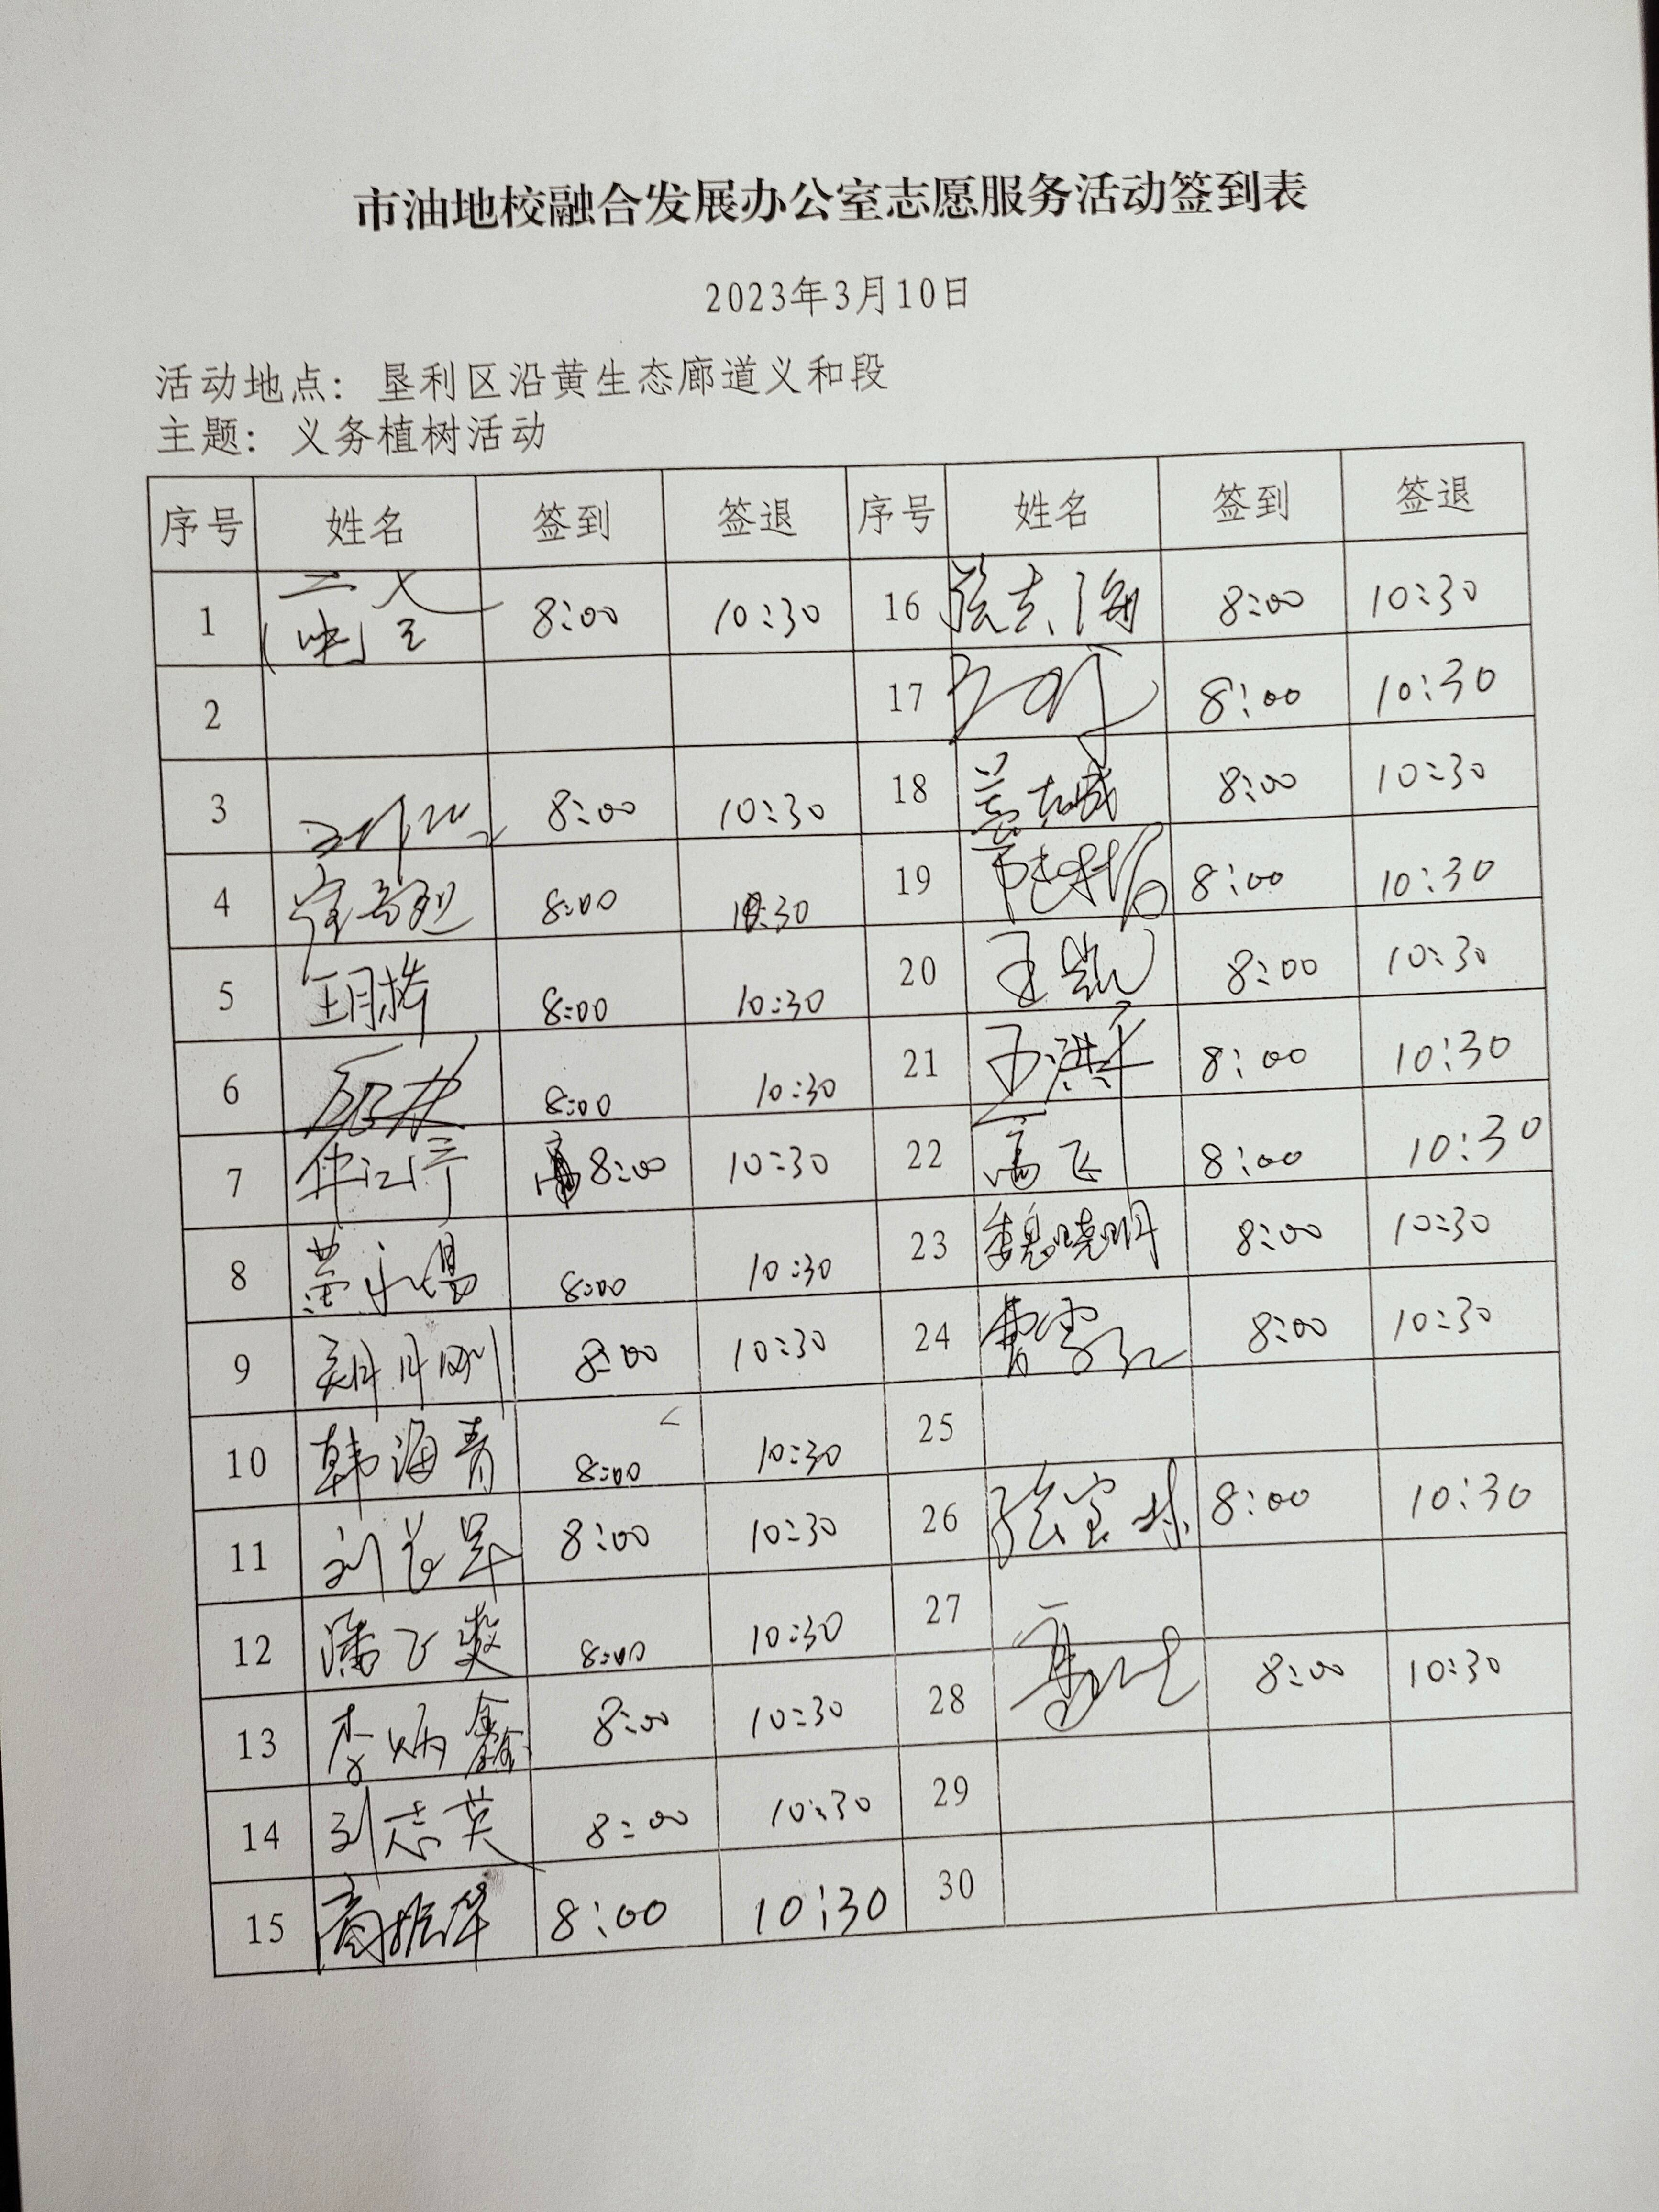 市油地校融合发展办公室志愿服务活动签到表
2023年3月10日
活动地点：垦利区沿黄生态廊道义和段
主题：义务植树活动
序号 姓名 签到 签退 序号 姓名 签到 签退
1 8:00 10:30 16 张志海 8:00 10:30
2 17 8:00 10:30
3 8:00 10:30 18 8:00 10:30
4 8:00 10:30 19 8:00 10:30
5 8:00 10:30 20 王凯 8:00 10:30
6 8:00 10:30 21 8:00 10:30
7 8:00 10:30 22 高飞 8:00 10:30
8 8:00 10:30 23 魏晓明 8:00 10:30
9 8:00 10:30 24 8:00 10:30
10 韩海青 8:00 10:30 25
11 8:00 10:30 26 张宝林 8:00 10:30
12 潘飞爽 8:00 10:30 27
13 李炳鑫 8:00 10:30 28 8:00 10:30
14 刘志英 8:00 10:30 29
15 高振华 8:00 10:30 30